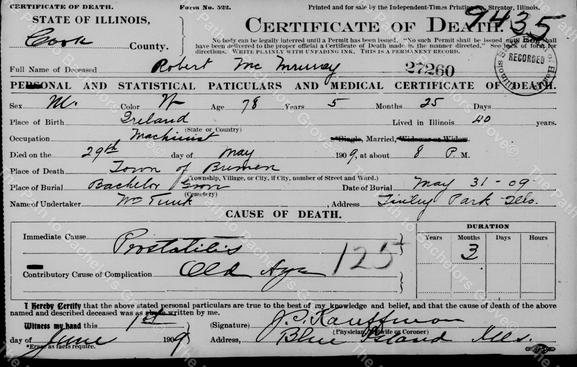 CERTIFICATE OF DEATH. Form No. 522. Printed and for sale by the Independent-Times Printing Streator, Illinois.
STATE OF ILLINOIS, CERTIFICATE OF DEATH. 7435
Cook County.
No body can be legally interred until a Permit has been "No such Permit shall
have been delivered to the proper official a Certificate of Death made in the manner directed." See back of form for
directions. WRITE PLAINLY WITH UNFADING INK, THIS IS A PERMANENT RECORD.
RECORDED
Full Name of Deceased Robert Mc 27260
PERSONAL AND STATISTICAL PATICULARS AND MEDICAL CERTIFICATE OF DEATH.
Sex M. Color W Age 78 Years 5 Months 25 Days
Place of Birth Ireland (State or Country) Lived in Illinois 40 years.
Occupation Machinist Single, Married, Widower or Widow
Died on the 29th day of May 1909, at about 8 P. M.
Place of Death Town of Bremen
(Township, Village, or City, if City, number of Street and Ward.)
Place of Burial Bachelor Grove (Cemetery) Date of Burial May 31-09
Name of Undertaker Address Tinley Park Ills.
CAUSE OF DEATH.
DURATION
Years Months Days Hours
Immediate Cause Prostatitis 3
125
Contributory Cause of Complication Old Age
I Hereby Certify that the above stated personal particulars are true to the best of my knowledge and belief, and that the cause of death of the above
named and described deceased was as above written by me.
Witness my hand this 1st (Signature) J. S. Kauffman
(Physician, Midwife or Coroner)
day of June 1909 Address, Blue Island Ills.
*Erase as facts require.
The Path to Bachelors Grove